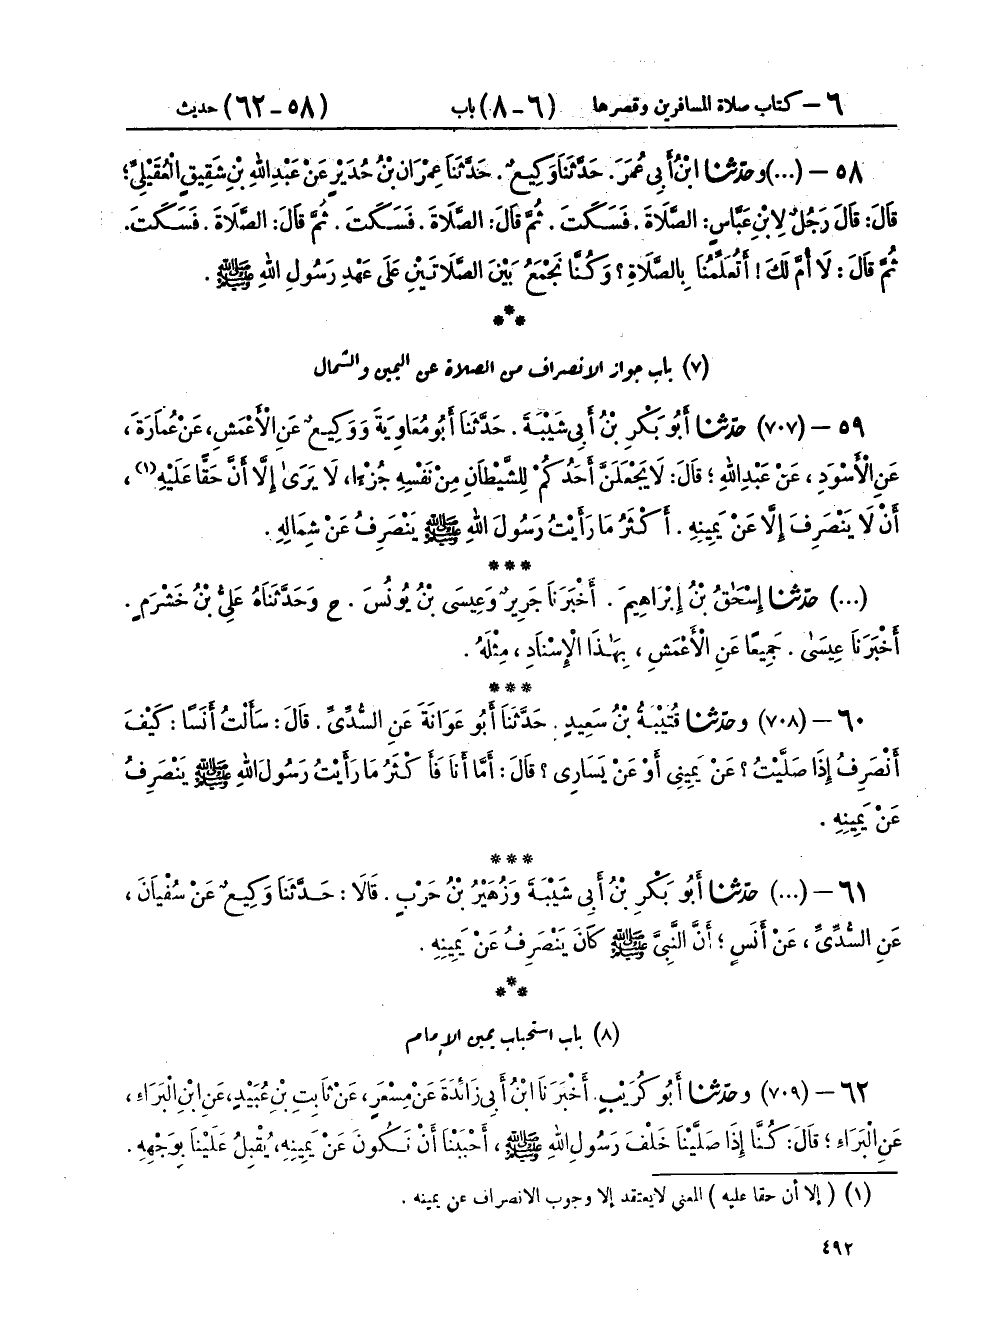 ٦ – كتاب صلاة المسافرين وقصرها (٦ – ٨) باب (٥٨ – ٦٢) حديث
٥٨ – (...) وحدّثنا ابْنُ أَبِي عُمَرَ. حَدَّثَنَا وَكِيعٌ. حَدَّثَنَا عِمْرَانُ بْنُ حُدَيْرٍ عَنْ عَبْدِ اللهِ بْنِ شَقِيقٍ الْعُقَيْلِيِّ؛
قَالَ: قَالَ رَجُلٌ لِابْنِ عَبَّاسٍ: الصَّلَاةَ. فَسَكَتَ. ثُمَّ قَالَ: الصَّلَاةَ. فَسَكَتَ. ثُمَّ قَالَ: الصَّلَاةَ. فَسَكَتَ.
ثُمَّ قَالَ: لَا أُمَّ لَكَ! أَتُعَلِّمُنَا بِالصَّلَاةِ؟ وَكُنَّا نَجْمَعُ بَيْنَ الصَّلَاتَيْنِ عَلَى عَهْدِ رَسُولِ اللهِ ﷺ.
***
(٧) باب جواز الانصراف من الصلاة عن اليمين والشمال
٥٩ – (٧٠٧) حدّثنا أَبُو بَكْرِ بْنُ أَبِي شَيْبَةَ. حَدَّثَنَا أَبُو مُعَاوِيَةَ وَوَكِيعٌ عَنِ الْأَعْمَشِ، عَنْ عُمَارَةَ،
عَنِ الْأَسْوَدِ، عَنْ عَبْدِ اللهِ؛ قَالَ: لَا يَجْعَلَنَّ أَحَدُكُمْ لِلشَّيْطَانِ مِنْ نَفْسِهِ جُزْءًا، لَا يَرَىٰ إِلَّا أَنَّ حَقًّا عَلَيْهِ(١)،
أَنْ لَا يَنْصَرِفَ إِلَّا عَنْ يَمِينِهِ. أَكْثَرُ مَا رَأَيْتُ رَسُولَ اللهِ ﷺ يَنْصَرِفُ عَنْ شِمَالِهِ.
***
(...) حدّثنا إِسْحَٰقُ بْنُ إِبْرَاهِيمَ. أَخْبَرَنَا جَرِيرٌ وَعِيسَى بْنُ يُونُسَ. ح وَحَدَّثَنَاهُ عَلِيُّ بْنُ خَشْرَمٍ.
أَخْبَرَنَا عِيسَىٰ. جَمِيعًا عَنِ الْأَعْمَشِ، بِهَٰذَا الْإِسْنَادِ، مِثْلَهُ.
***
٦٠ – (٧٠٨) وحدّثنا قُتَيْبَةُ بْنُ سَعِيدٍ. حَدَّثَنَا أَبُو عَوَانَةَ عَنِ السُّدِّيِّ. قَالَ: سَأَلْتُ أَنَسًا: كَيْفَ
أَنْصَرِفُ إِذَا صَلَّيْتُ؟ عَنْ يَمِينِي أَوْ عَنْ يَسَارِي؟ قَالَ: أَمَّا أَنَا فَأَكْثَرُ مَا رَأَيْتُ رَسُولَ اللهِ ﷺ يَنْصَرِفُ
عَنْ يَمِينِهِ.
***
٦١ – (...) حدّثنا أَبُو بَكْرِ بْنُ أَبِي شَيْبَةَ وَزُهَيْرُ بْنُ حَرْبٍ. قَالَا: حَدَّثَنَا وَكِيعٌ عَنْ سُفْيَانَ،
عَنِ السُّدِّيِّ، عَنْ أَنَسٍ؛ أَنَّ النَّبِيَّ ﷺ كَانَ يَنْصَرِفُ عَنْ يَمِينِهِ.
***
(٨) باب استحباب يمين الإمام
٦٢ – (٧٠٩) وحدّثنا أَبُو كُرَيْبٍ. أَخْبَرَنَا ابْنُ أَبِي زَائِدَةَ عَنْ مِسْعَرٍ، عَنْ ثَابِتِ بْنِ عُبَيْدٍ، عَنِ ابْنِ الْبَرَاءِ،
عَنِ الْبَرَاءِ؛ قَالَ: كُنَّا إِذَا صَلَّيْنَا خَلْفَ رَسُولِ اللهِ ﷺ، أَحْبَبْنَا أَنْ نَكُونَ عَنْ يَمِينِهِ، يُقْبِلُ عَلَيْنَا بِوَجْهِهِ.
(١) (إلا أن حقا عليه) المعنى لايعتقد إلا وجوب الانصراف عن يمينه.
٤٩٢